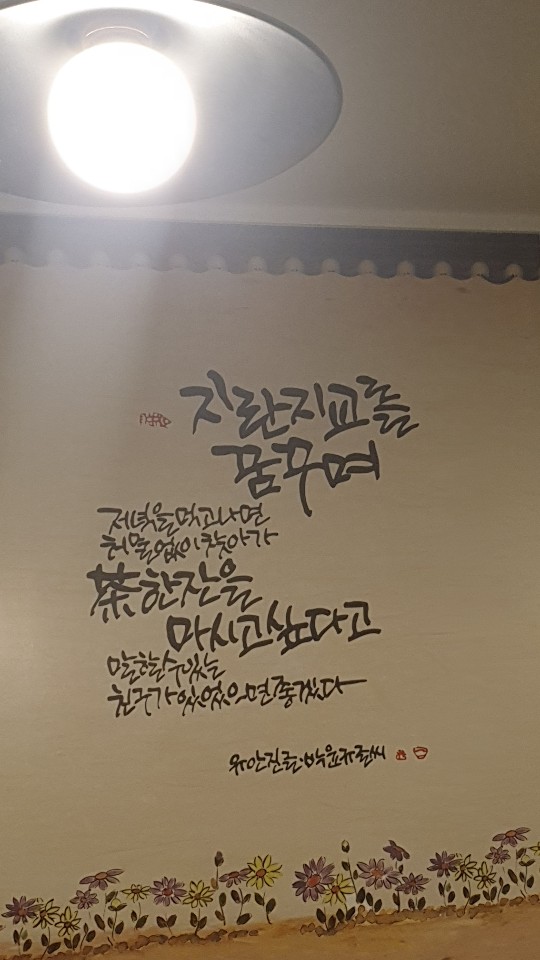 지란지교를
꿈꾸며
저녁을 먹고나면
허물없이 찾아가
茶 한잔을
마시고 싶다고
말할 수 있는
친구가 있었으면 좋겠다
유안진 글·박윤규 글씨